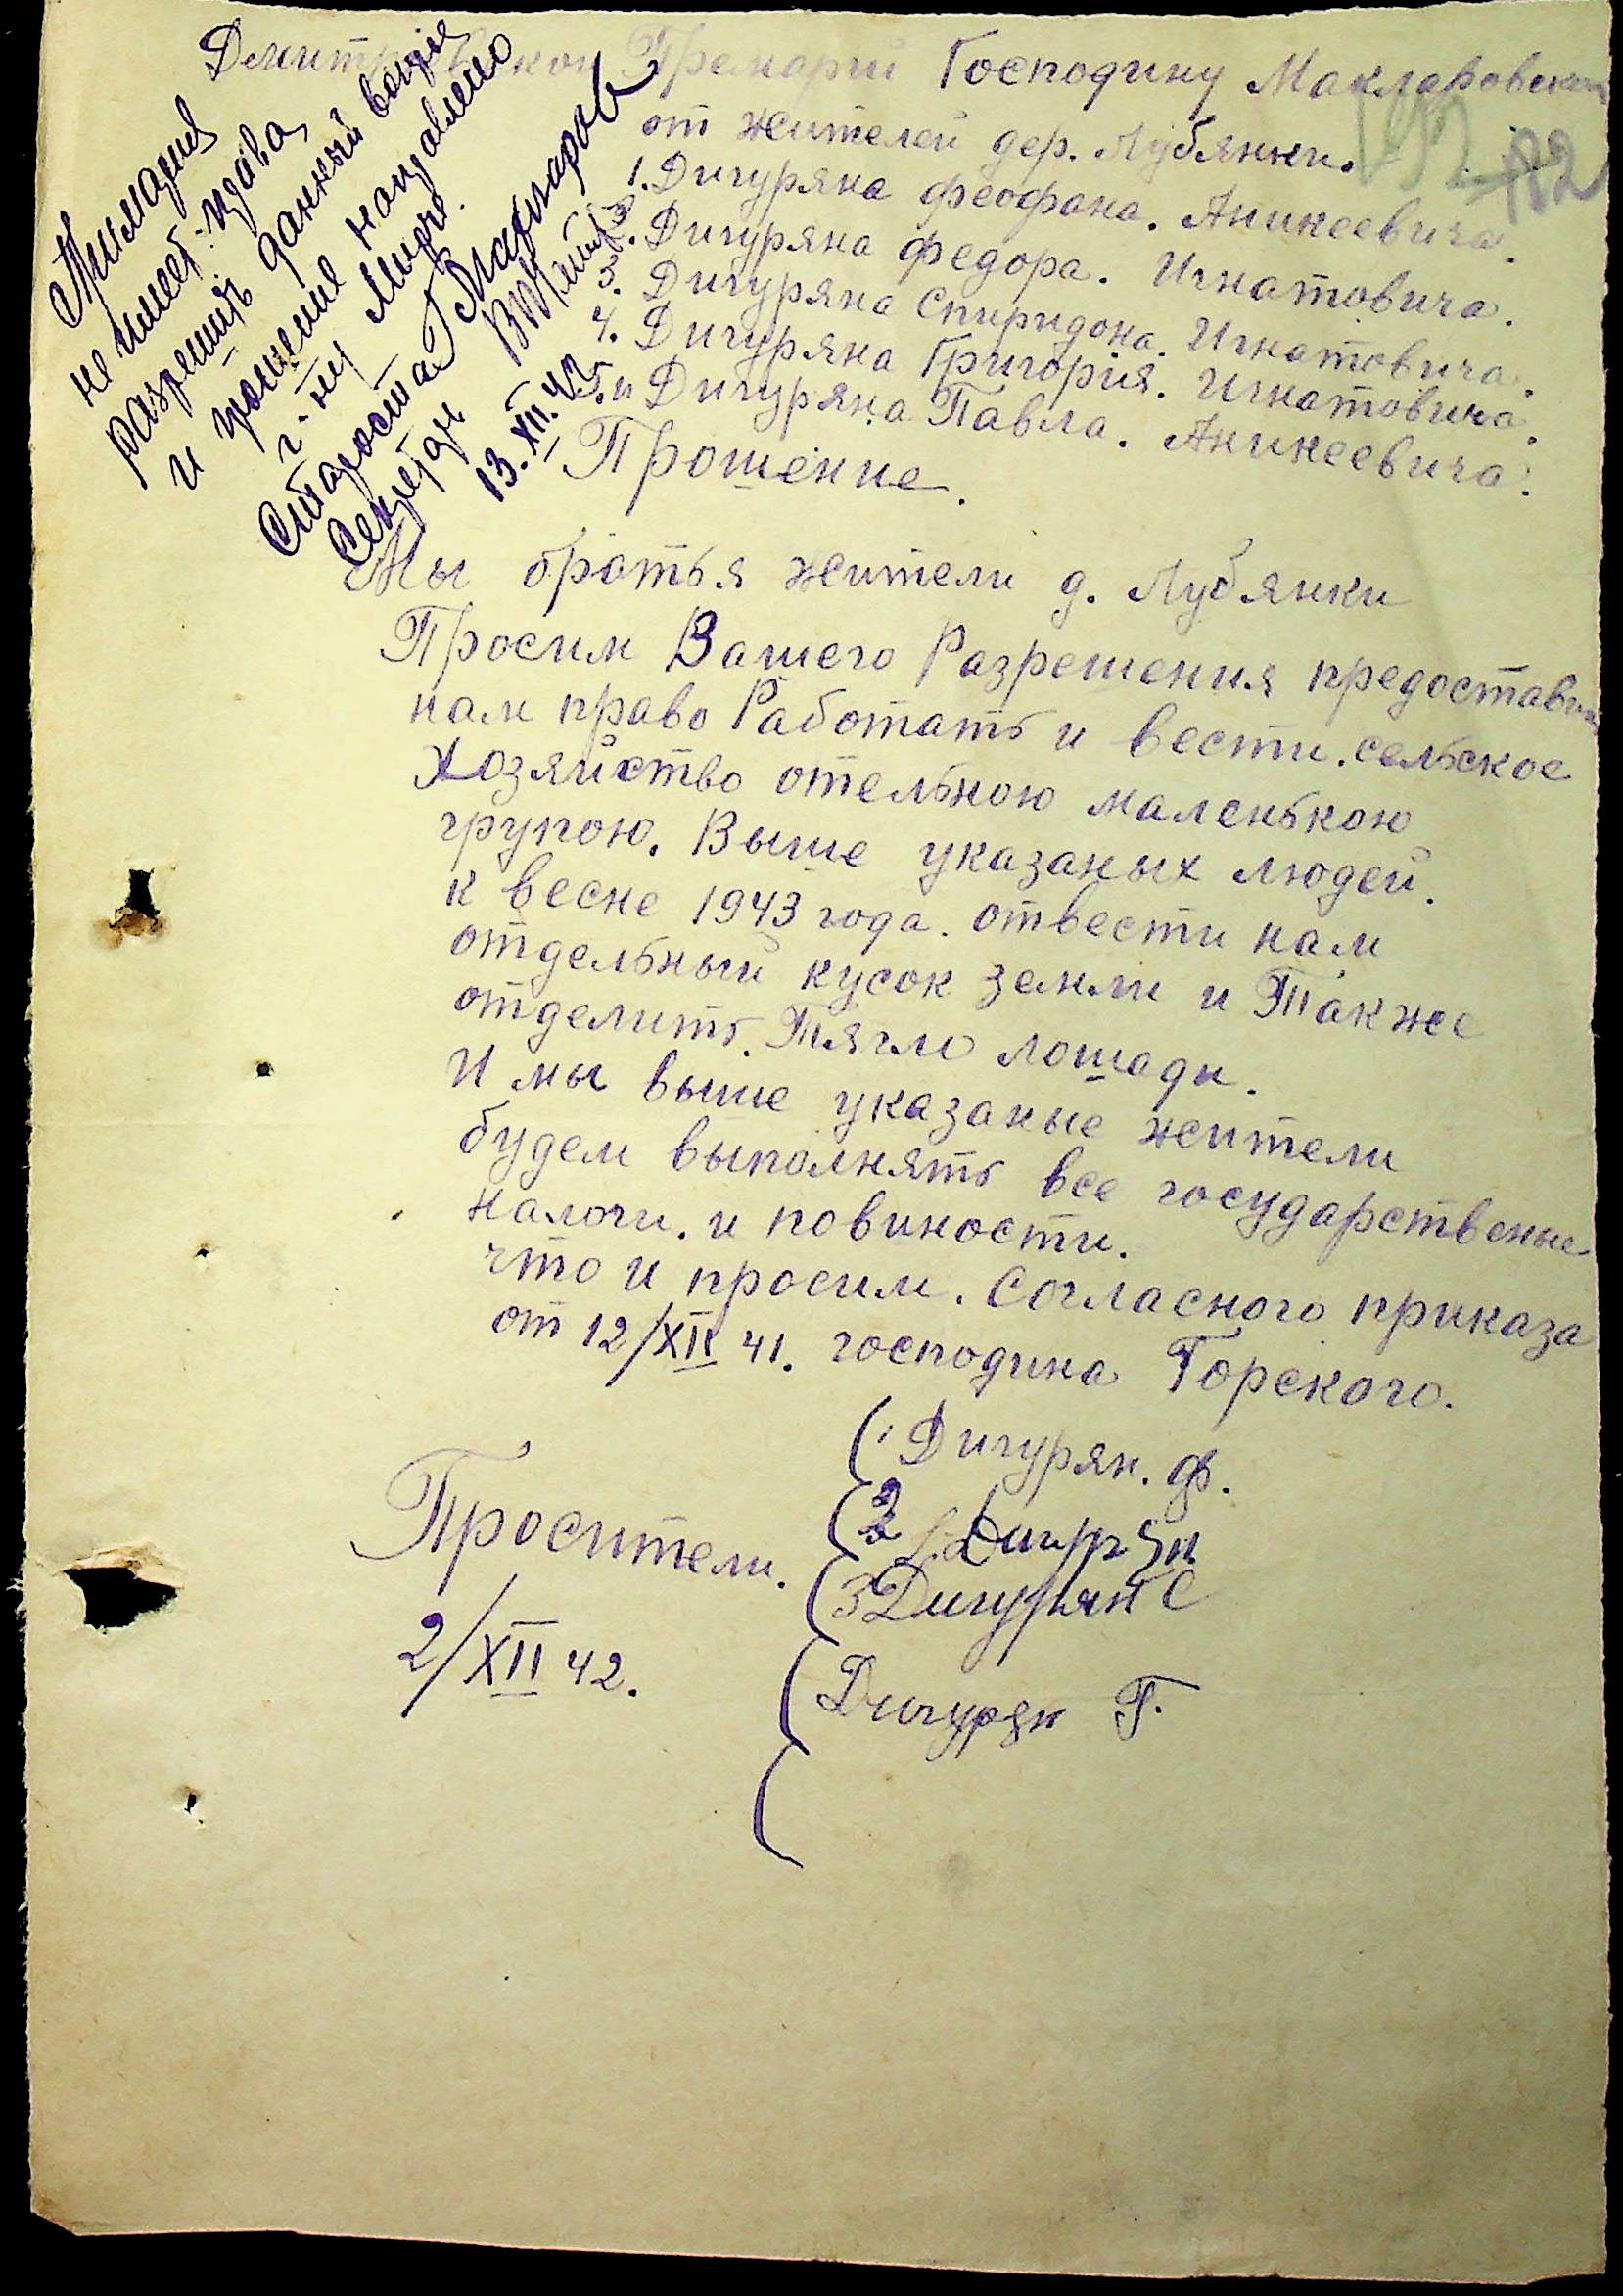 Премарии Господину Макларовскому
от жителей дер. Лубянки.
1. Дигуряна феофана. Аникеевича.
2. Дигуряна федора. Игнатовича.
3. Дигуряна Спиридона. Игнатовича.
4. Дигуряна Григория. Игнатовича.
5. и Дигуряна Павла. Аникеевича.
Примария
не имеет права
разрешить данный вопрос
и прошение направлено
Староста
Секретарь
13.XII.42
Прошение.
Мы братья жители д. Лубянки
Просим Вашего Разрешения предоставить
нам право Работать и вести. сельское
хозяйство отельною маленькою
групою. Выше указаных людей.
к весне 1943 года. отвести нам
отдельный кусок земли и Также
отделить. Тягло лошади.
И мы выше указаные жители
будем выполнять все государственые
налоги. и повиности.
что и просим. Согласного приказа
от 12/XII 41. господина Горского.
Просители.
2/XII 42.
(1 Дигурян. ф.
(2 Дигурян
(3 Дигурян С
(Дигурян Г.
(